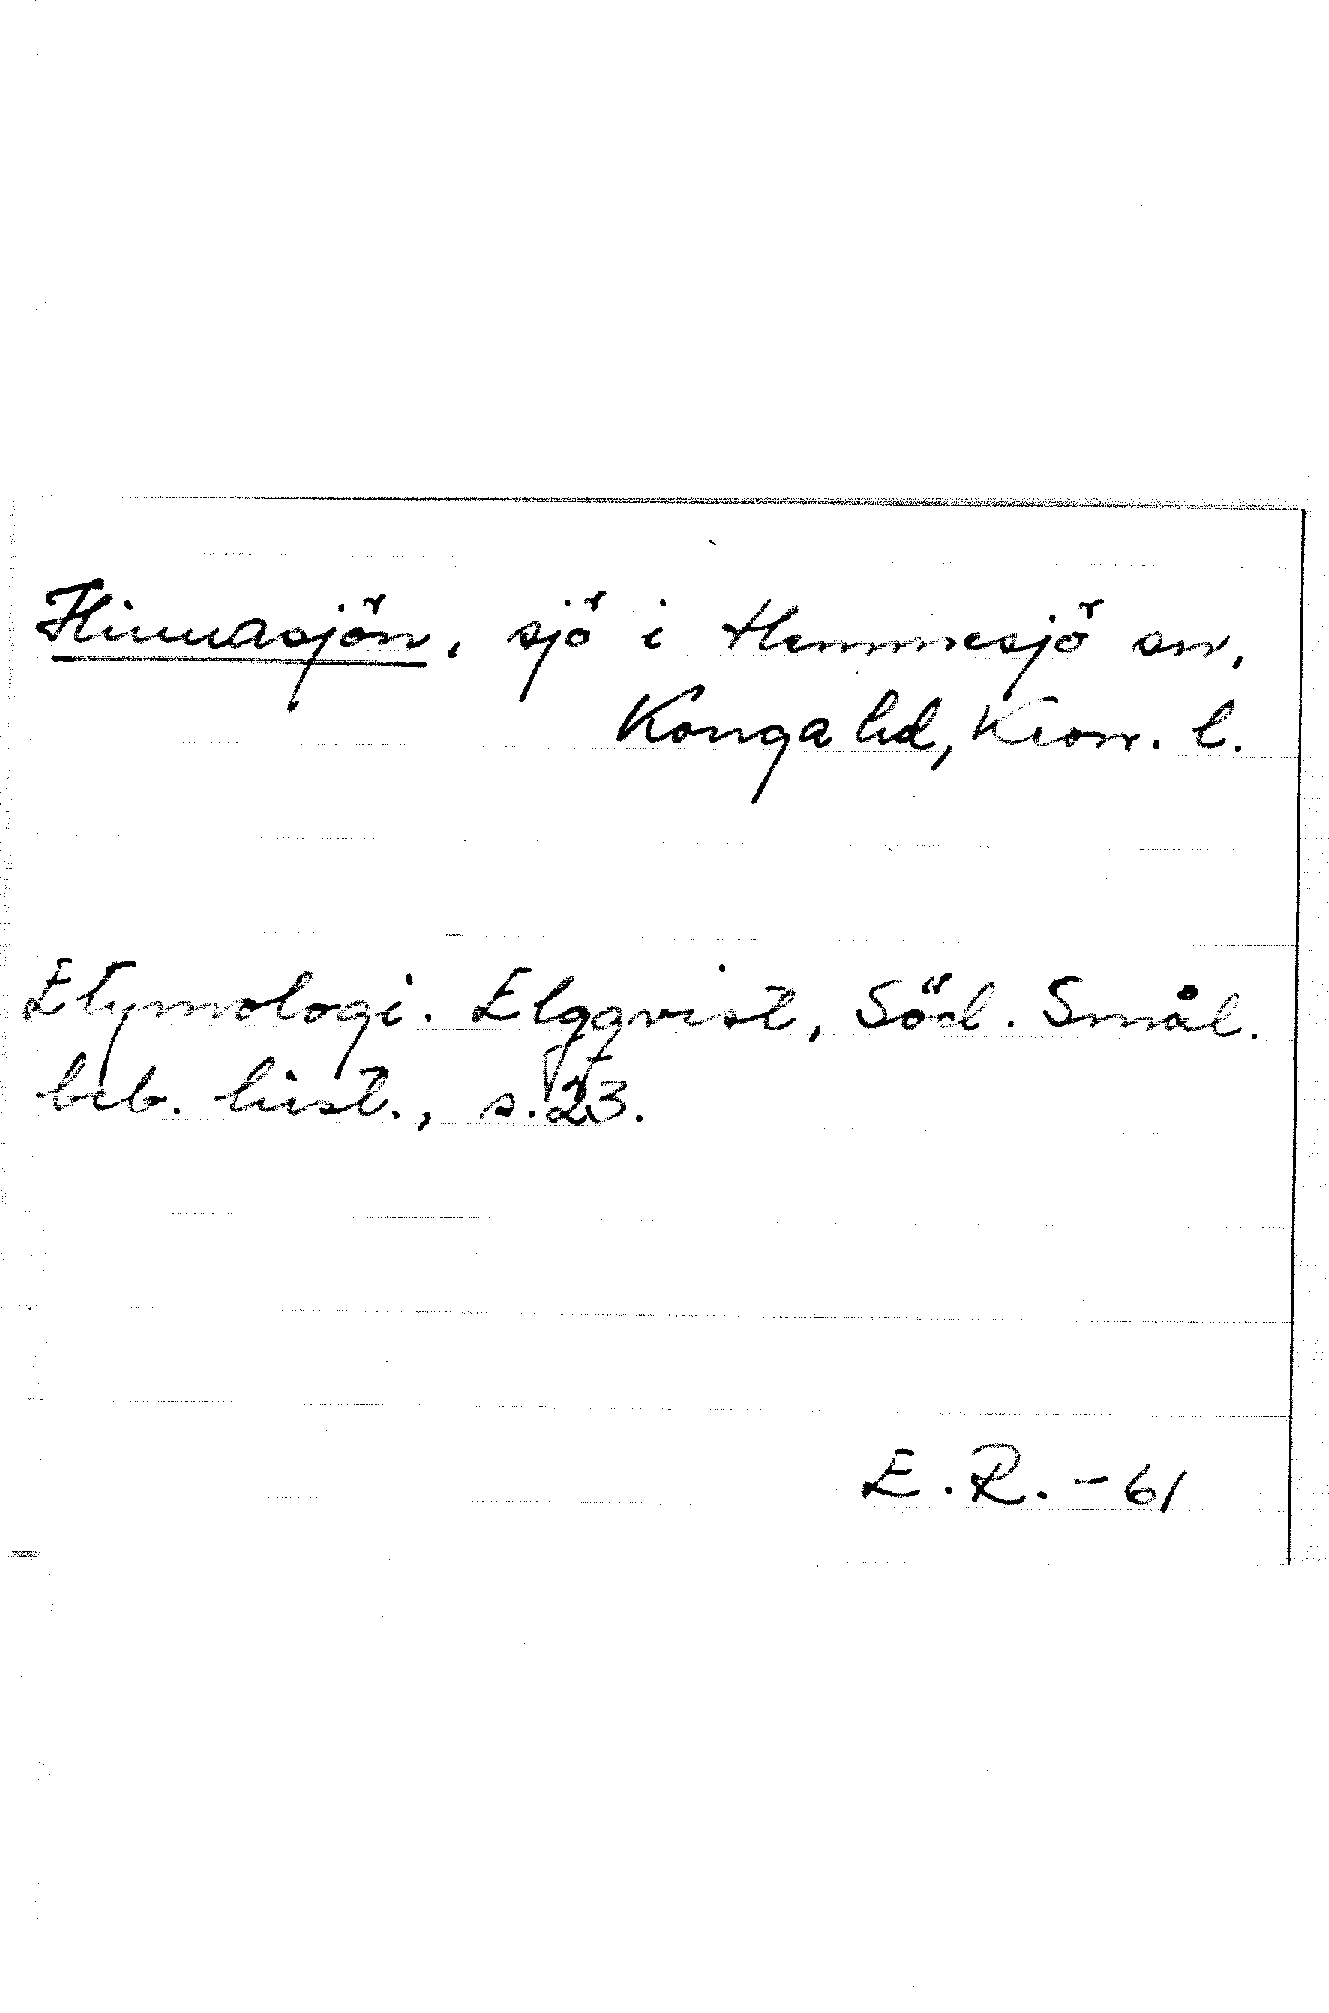 Hinnasjön, sjö i Hemmesjö sn,
Konga hd, Kron. l.
Etymologi. Elgqvist, Söd. Smål.
beb. hist., s. 23.
E. R. - 61